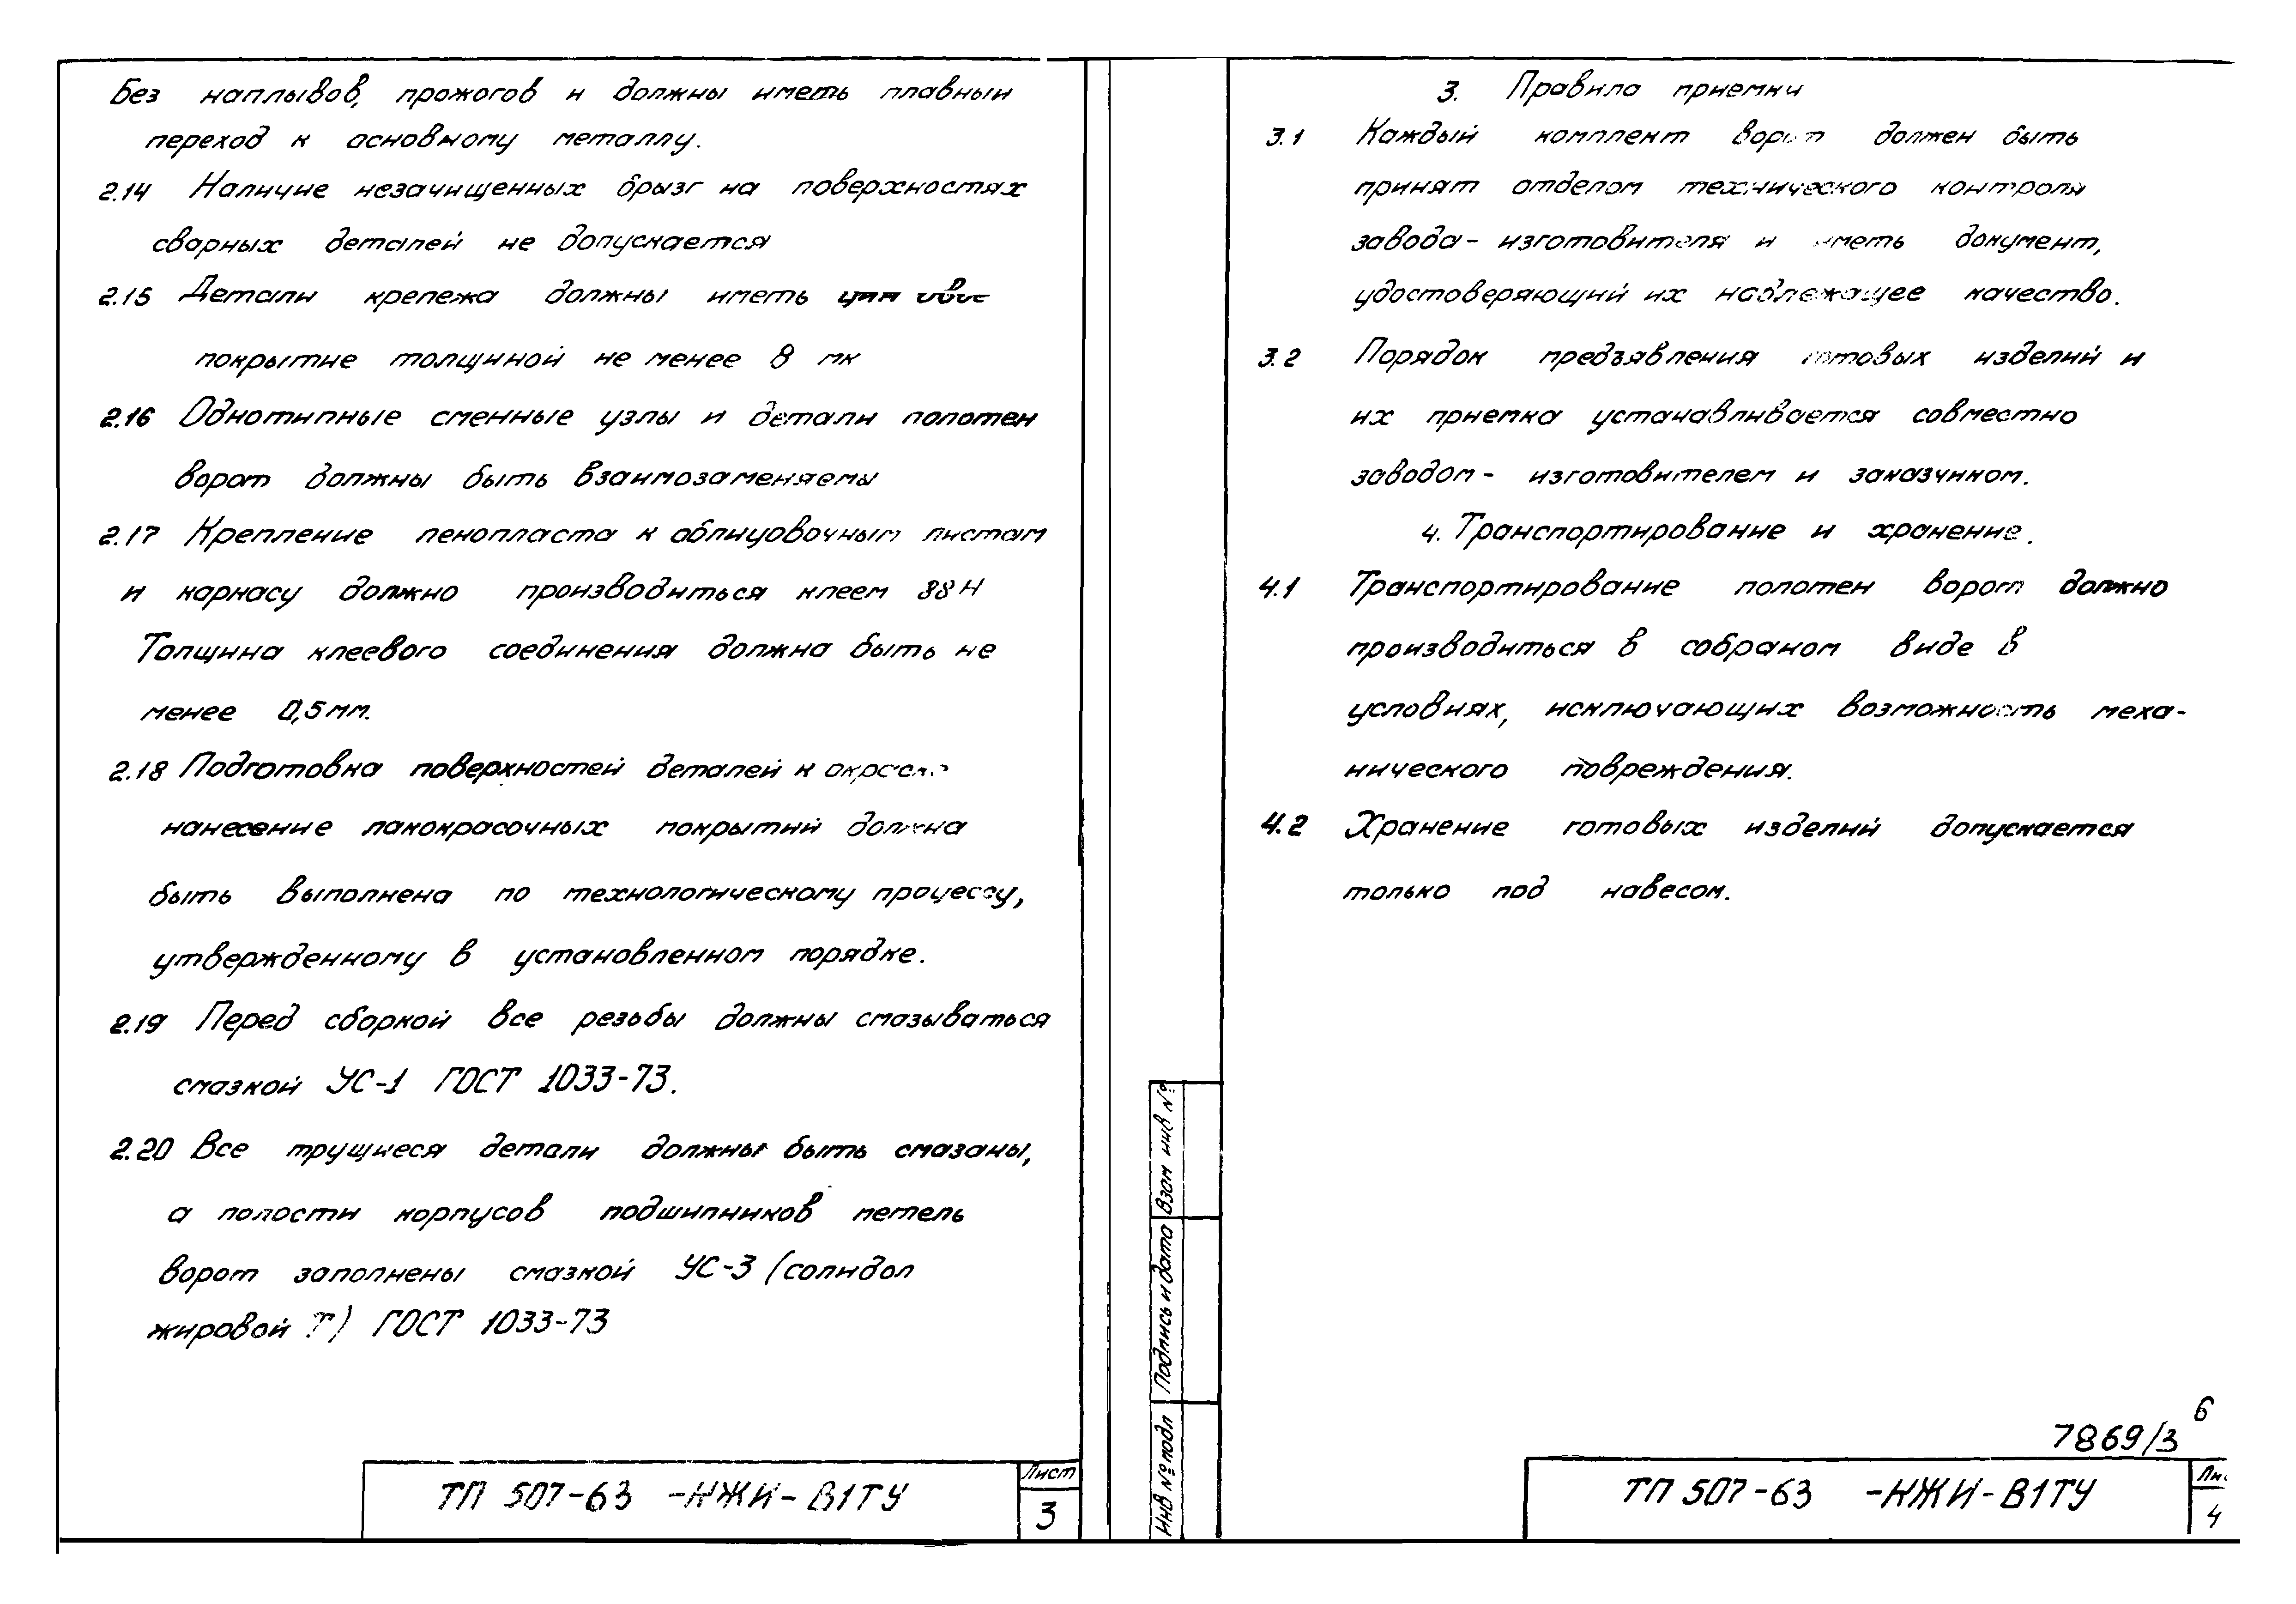 Без наплывов, прожогов и должны иметь плавный
переход к основному металлу.
2.14 Наличие незачищенных брызг на поверхностях
сварных деталей не допускается
2.15 Детали крепежа должны иметь
покрытие толщиной не менее 8 мк
2.16 Однотипные сменные узлы и детали полотен
ворот должны быть взаимозаменяемы
2.17 Крепление пенопласта к облицовочным листам
и каркасу должно производиться клеем 88Н
Толщина клеевого соединения должна быть не
менее 0,5мм.
2.18 Подготовка поверхностей деталей к
нанесение лакокрасочных покрытий должна
быть выполнена по технологическому процессу,
утвержденному в установленном порядке.
2.19 Перед сборкой все резьбы должны смазываться
смазкой УС-1 ГОСТ 1033-73.
2.20 Все трущиеся детали должны быть смазаны,
а полости корпусов подшипников петель
ворот заполнены смазкой УС-3 (солидол
жировой Т) ГОСТ 1033-73
ТП 507-63 -НЖИ-В1ТУ
Лист
3
3. Правила приемки
3.1 Каждый комплект ворот должен быть
принят отделом технического контроля
завода-изготовителя и иметь документ,
удостоверяющий их надлежащее качество.
3.2 Порядок предъявления готовых изделий и
их приемка устанавливается совместно
заводом-изготовителем и заказчиком.
4. Транспортирование и хранение.
4.1 Транспортирование полотен ворот должно
производиться в собраном виде в
условиях, исключающих возможность меха-
нического повреждения.
4.2 Хранение готовых изделий допускается
только под навесом.
Взам инв №
Подпись и дата
Инв № подл
6
7869/3
ТП 507-63 -НЖИ-В1ТУ
4